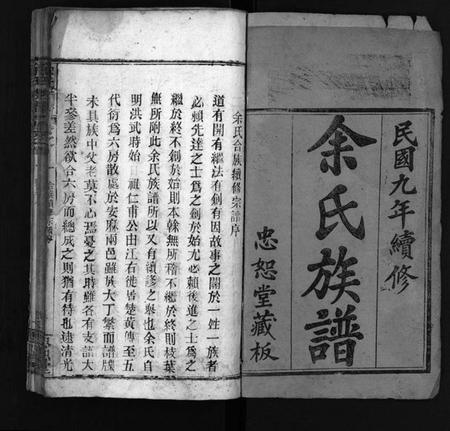 民國九年續修
余氏族譜
忠恕堂藏板
余氏合族續修宗譜序
道有開有繼法有創有因故事之關於一姓一族者
必賴先達之士為之創於始尤必賴後進之士為之
繼於終不創於始則本榦無所稽不繼於終則枝葉
無所附此余氏族譜所以又有續修之舉也余氏自
明洪武時始祖仁甫公由江右徙居楚黃傳至五
代衍為六房散處於安麻兩邑雖族大丁繁而譜牒
未具族中父老莫不心焉憂之其時雖各有支譜大
半參差然欲合六房而總成之則猶有待也逮清光